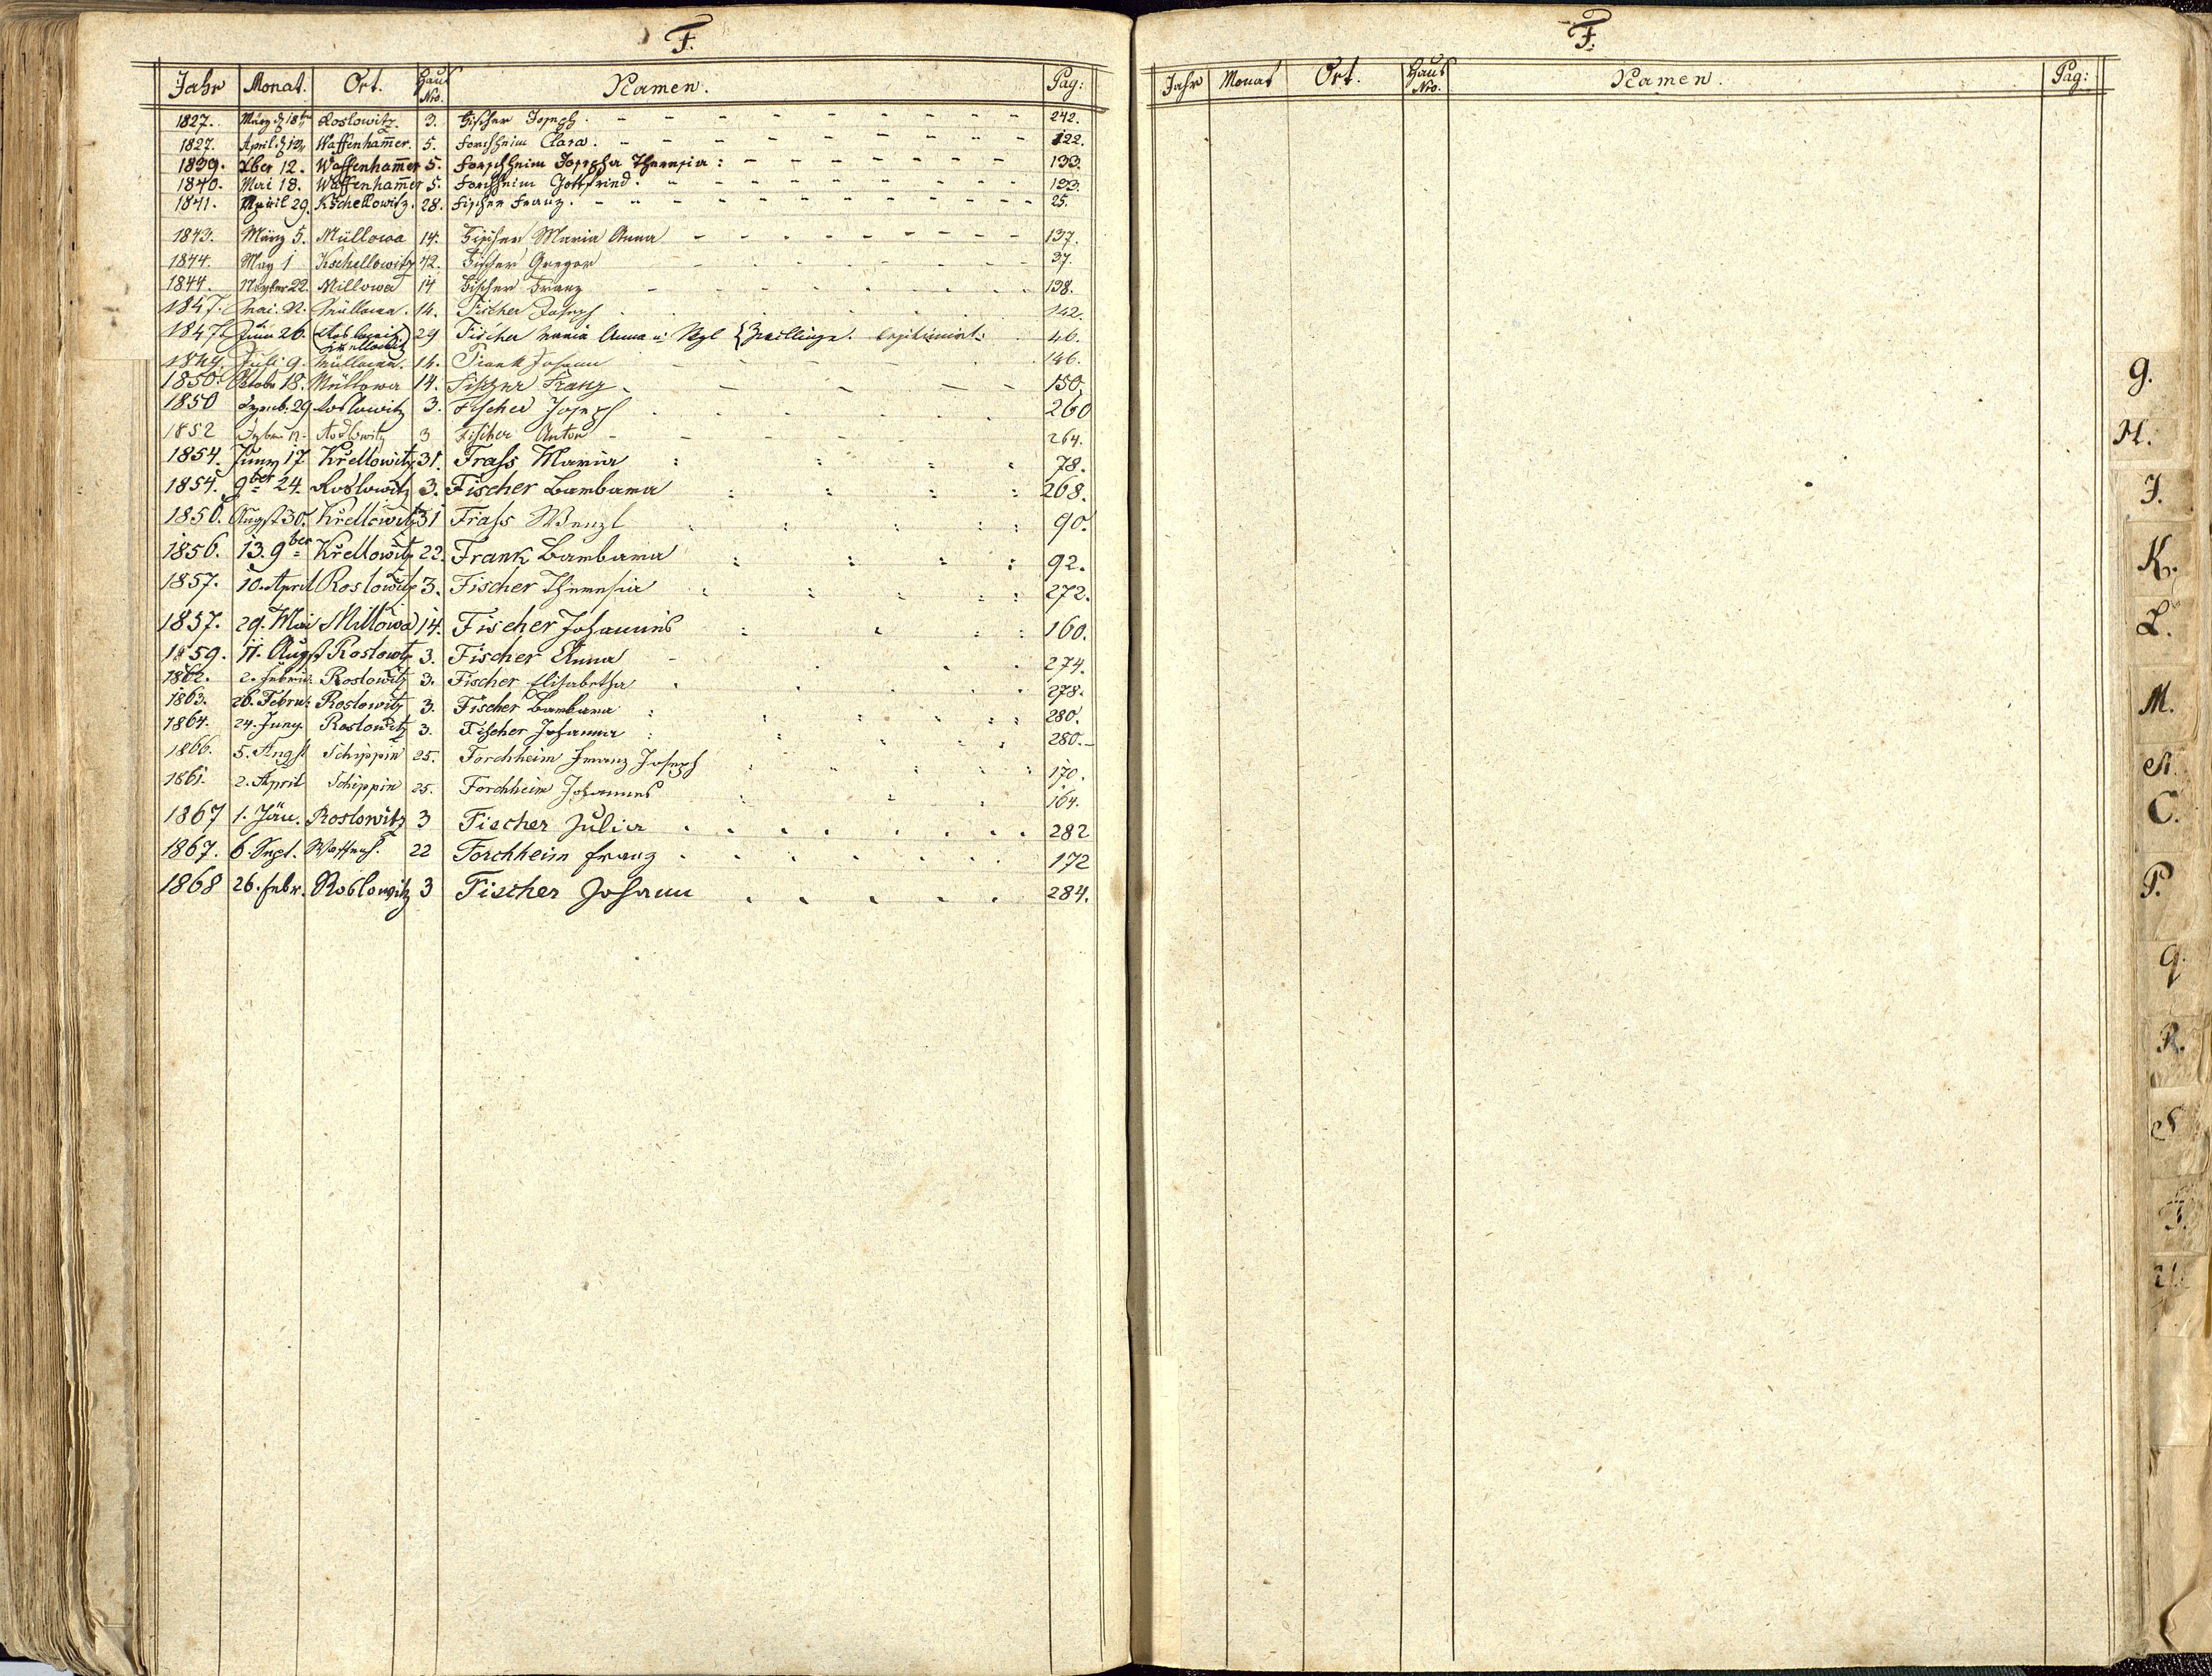 F.
Jahr Monat. Ort. Haus Nro. Namen. Pag:
1827. März d 18ten Roslowitz. 3. Fischer Joseph. 242.
1827. April d 12. Waffenham̄er. 5. Forchheim Clara. 122.
1839. Xber 12. Waffenham̄er 5. Forchheim Josepha Theresia: 133.
1840. Mai 18. Waffenham̄er 5. Forchheim Gottfried. 133.
1841. April 29. Kschellowitz. 28. Fischer Franz. 25.
1843. März 5. Müllowa 14. Fischer Maria Anna 137.
1844. May 1 Kschellowitz 42. Fischer Gregor 37.
1844. 22. Millowa 14 Fischer Franz 138.
1847. Mai. Müllowa. 14. Fischer Joseph 142.
1847. Juni 26. (Roslowitz) 29 Fischer Maria Anna u. {Zwillinge. legitimirt: 46.
Juli 9. Müllowa. 14. Frank Johann 146.
1850. Octob. 18. Müllowa 14. Fischer Franz. 150.
1850 29 Roslowitz 3. Fischer Joseph 260
1852 Roslowitz 3 Fischer Anton 264.
1854. Juny 17 Křellowitz 31. Frass Maria 78.
1854. 9ber 24. Roslowitz 3. Fischer Barbara 268.
1856. Augst 30. Křellowitz 31 Frass Wenzl 90.
1856. 13. 9ber Křellowitz 22. Frank Barbara 92.
1857. 10. April Roslowitz 3. Fischer Theresia 272.
1857. 29. Mai Millowa 14. Fischer Johannes 160.
1859. 11. Augst Roslowtz 3. Fischer Anna 274.
1862. 2. Febru: Roslowitz 3. Fischer Elisabetha 278.
1863. 26. Febru: Roslowitz 3. Fischer Barbara 280.
1864. 24. Juny. Roslowitz 3. Fischer Johanna 280.
1866. 5. Augst Schippin 25. Forchheim Franz Joseph 170.
1861. 2. April Schippin 25. Forchheim Johannes 164.
1867 1. Jän. Roslowitz 3 Fischer Julia 282
1867. 6. Sept. Waffenh. 22 Forchheim Franz 172
1868 26. Febr. Roslowitz 3 Fischer Johann 284.
F.
Jahr Monat Ort. Haus Nro. Namen. Pag:
G.
H.
J.
K.
L.
M.
N.
O.
P.
Q
R.
S
T.